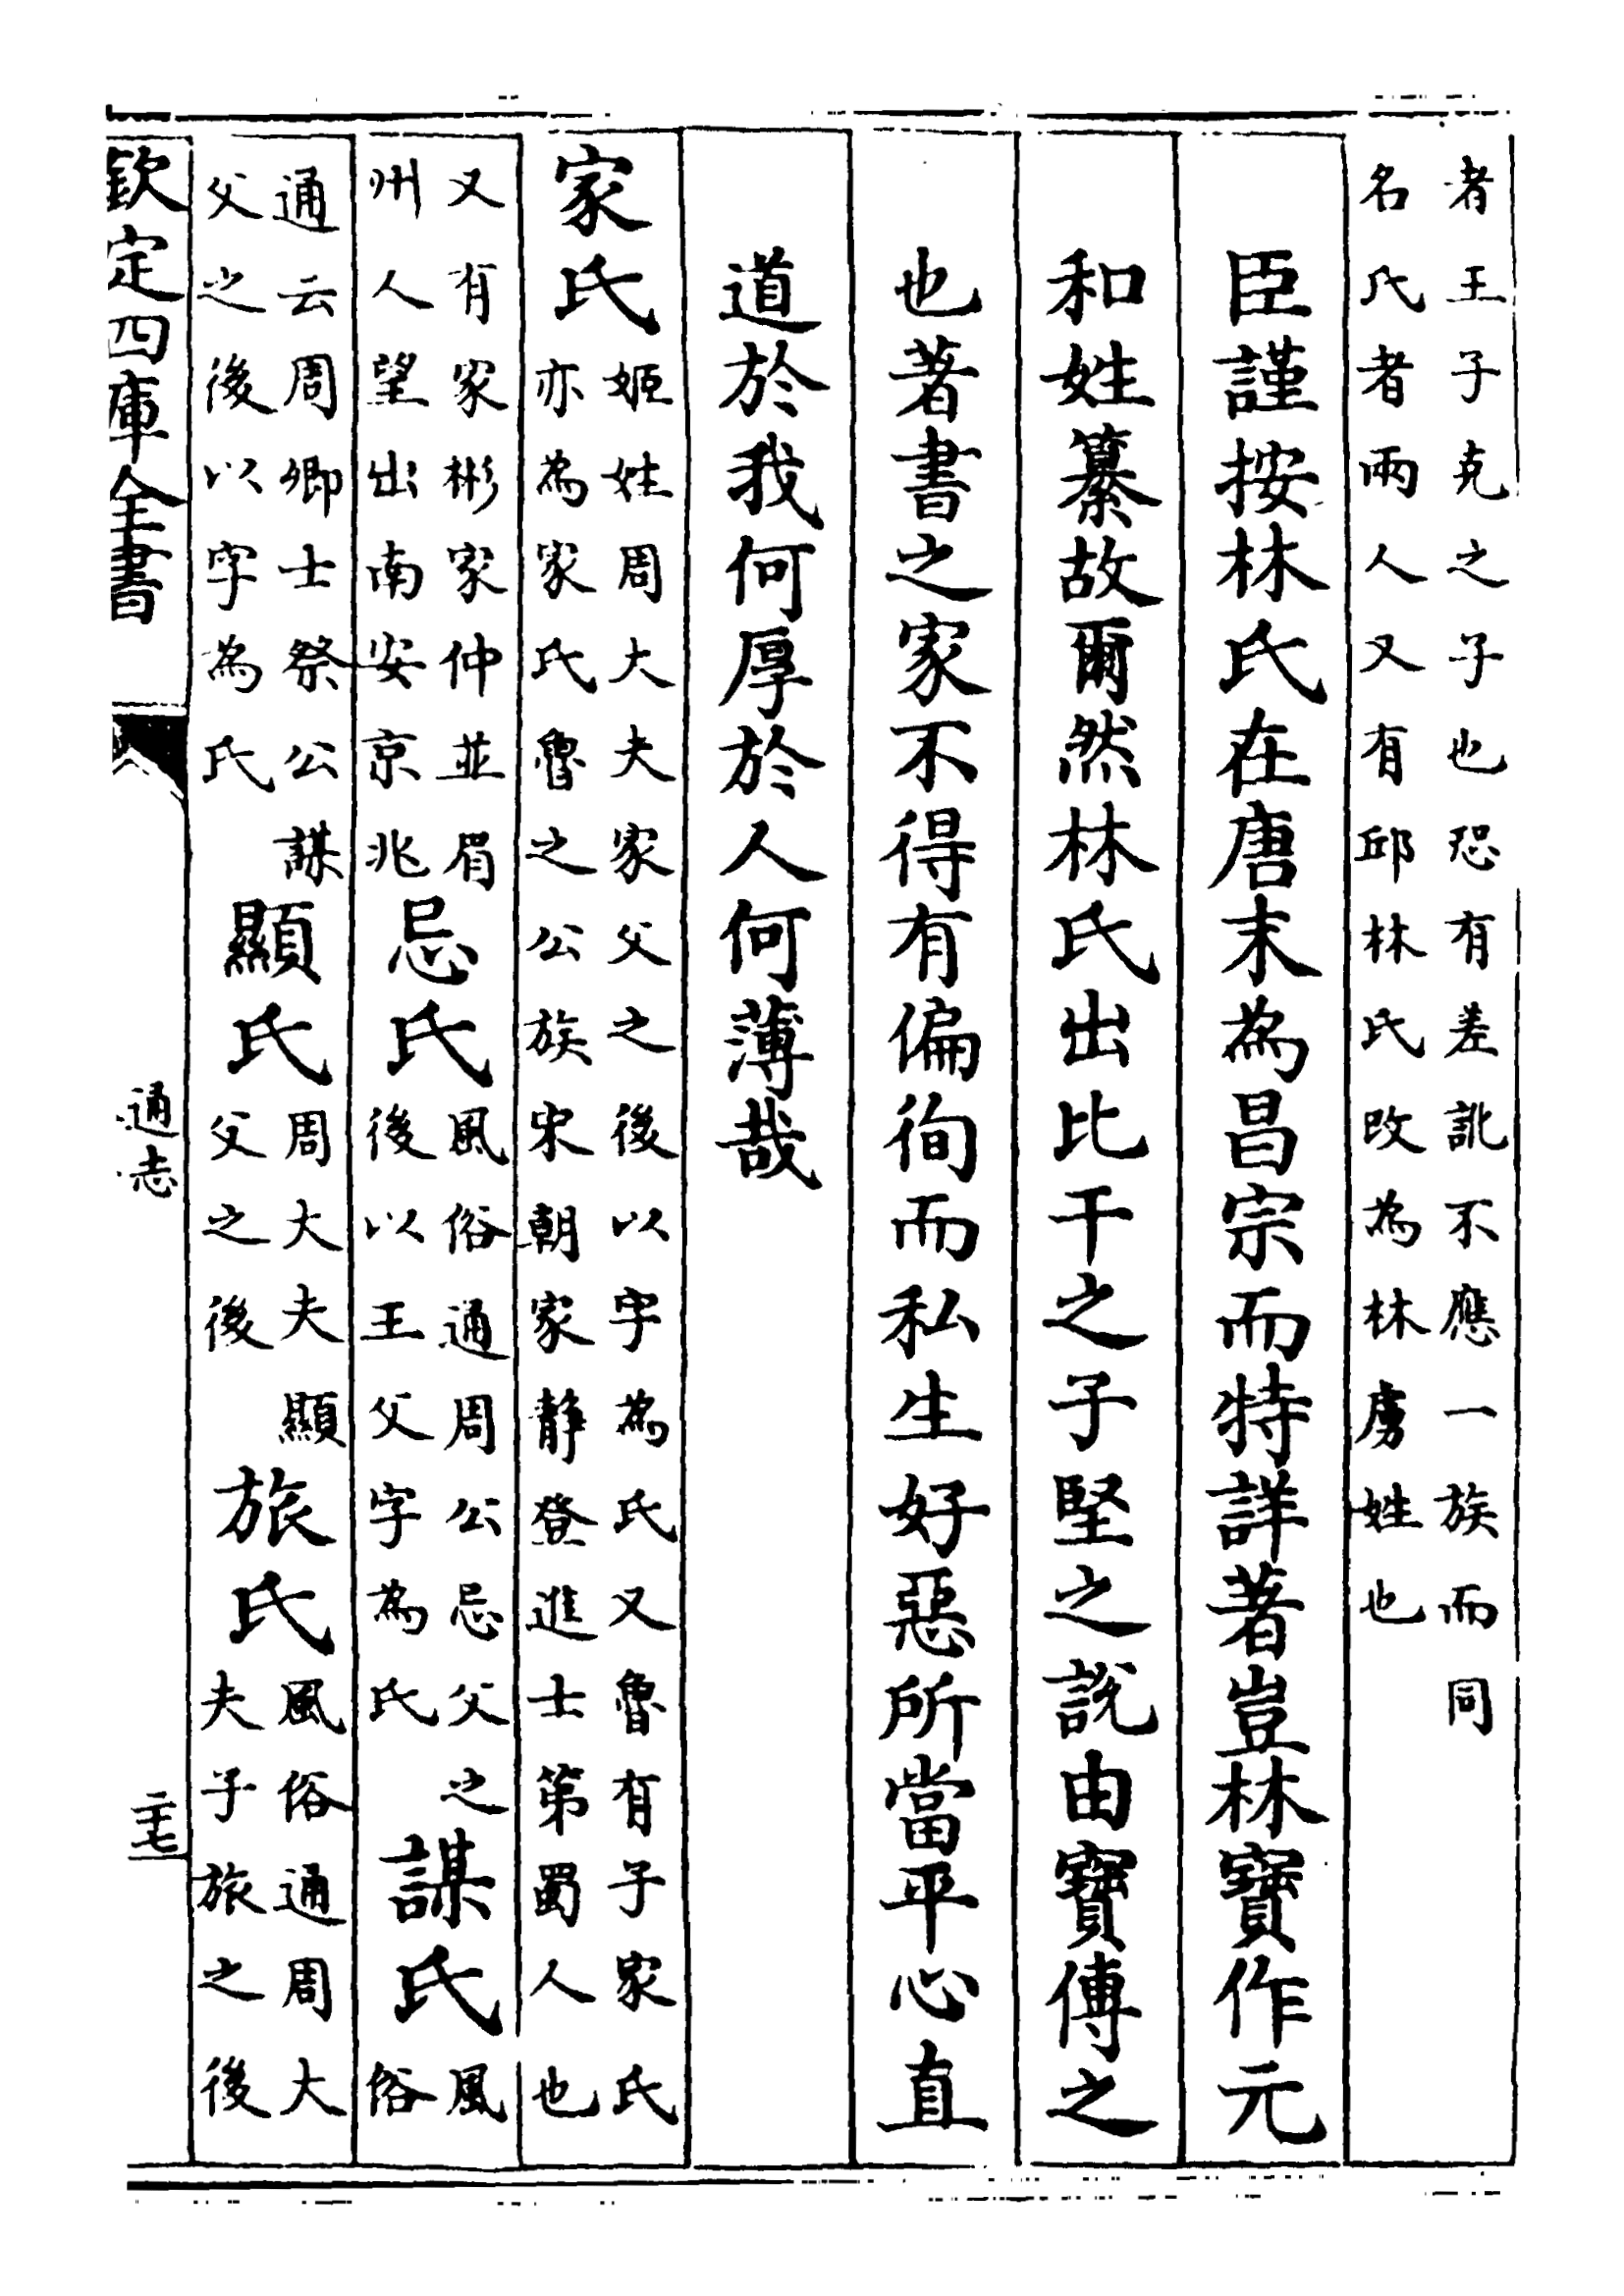 者王子克之子也恐有差訛不應一族而同
名氏者兩人又有邱林氏改為林虜姓也
臣謹按林氏在唐末為昌宗而特詳著豈林寶作元
和姓纂故爾然林氏出比干之子堅之說由寶傳之
也著書之家不得有偏徇而私生好惡所當平心直
道於我何厚於人何薄哉
家氏
姬姓周大夫家父之後以字為氏又魯有子家氏
亦為家氏魯之公族宋朝家靜登進士第蜀人也
又有家彬家仲並眉
州人望出南安京兆
忌氏
風俗通周公忌父之
後以王父字為氏
謀氏
風
俗
通云周卿士祭公謀
父之後以字為氏
顯氏
周大夫顯
父之後
旅氏
風俗通周大
夫子旅之後
欽定四庫全書
通志
二十七